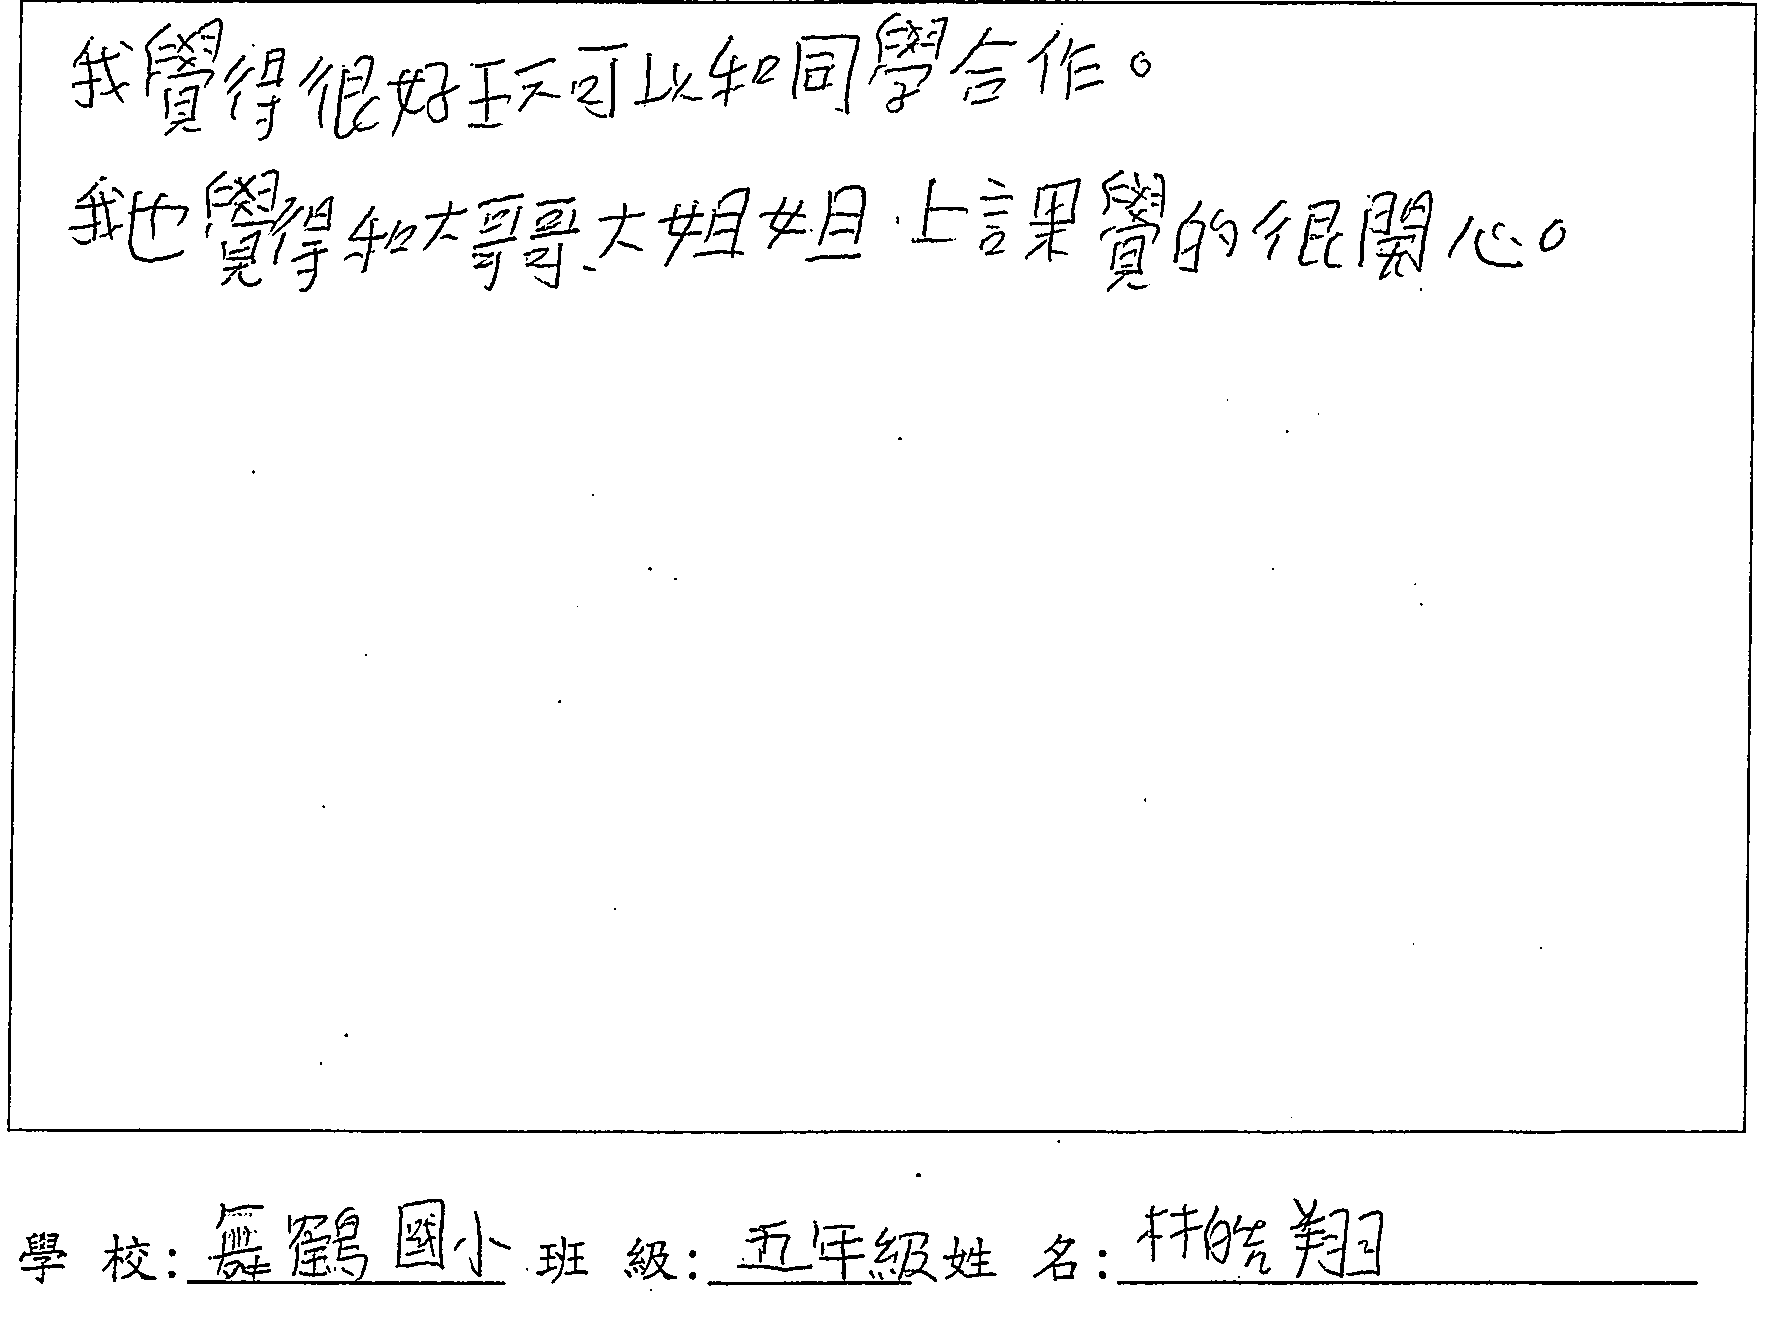 我覺得很好玩可以和同學合作。
我也覺得和大哥哥、大姐姐上課覺的很開心。
學 校：舞鶴國小 班 級：五年級 姓 名：林皓翔